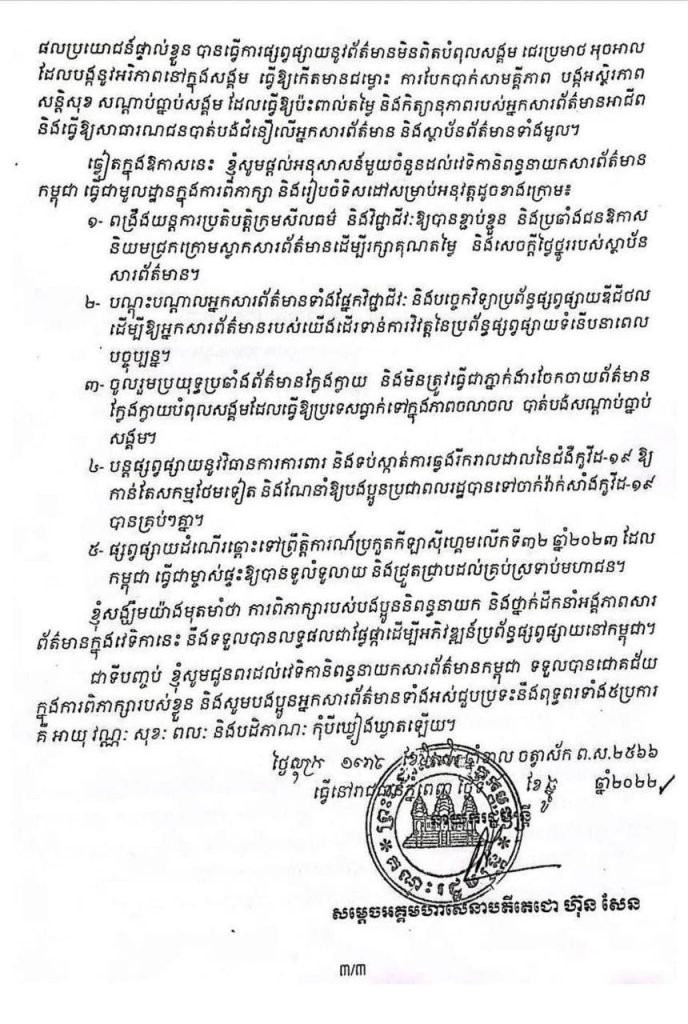 ផលប្រយោជន៍ផ្ទាល់ខ្លួន បានធ្វើការផ្សព្វផ្សាយនូវព័ត៌មានមិនពិតបំពុលសង្គម ជេរប្រមាថ អុចអាល
ដែលបង្កនូវអរិភាពនៅក្នុងសង្គម ធ្វើឱ្យកើតមានជម្លោះ ការបែកបាក់សាមគ្គីភាព បង្កអស្ថិរភាព
សន្តិសុខ សណ្តាប់ធ្នាប់សង្គម ដែលធ្វើឱ្យប៉ះពាល់តម្លៃ និងកិត្យានុភាពរបស់អ្នកសារព័ត៌មានអាជីព
និងធ្វើឱ្យសាធារណជនបាត់បង់ជំនឿលើអ្នកសារព័ត៌មាន និងស្ថាប័នព័ត៌មានទាំងមូល។
ឆ្លៀតក្នុងឱកាសនេះ ខ្ញុំសូមផ្តល់អនុសាសន៍មួយចំនួនដល់វេទិកានិពន្ធនាយកសារព័ត៌មាន
កម្ពុជា ធ្វើជាមូលដ្ឋានក្នុងការពិភាក្សា និងរៀបចំទិសដៅសម្រាប់អនុវត្តដូចខាងក្រោម៖
១- ពង្រឹងយន្តការប្រតិបត្តិក្រមសីលធម៌ និងវិជ្ជាជីវៈឱ្យបានខ្ជាប់ខ្ជួន និងប្រឆាំងជនឱកាស
និយមជ្រកក្រោមស្លាកសារព័ត៌មានដើម្បីរក្សាគុណតម្លៃ និងសេចក្តីថ្លៃថ្នូររបស់ស្ថាប័ន
សារព័ត៌មាន។
២- បណ្តុះបណ្តាលអ្នកសារព័ត៌មានទាំងផ្នែកវិជ្ជាជីវៈ និងបច្ចេកវិទ្យាប្រព័ន្ធផ្សព្វផ្សាយឌីជីថល
ដើម្បីឱ្យអ្នកសារព័ត៌មានរបស់យើងដើរទាន់ការវិវត្តនៃប្រព័ន្ធផ្សព្វផ្សាយទំនើបនាពេល
បច្ចុប្បន្ន។
៣- ចូលរួមប្រយុទ្ធប្រឆាំងព័ត៌មានក្លែងក្លាយ និងមិនត្រូវធ្វើជាភ្នាក់ងារចែកចាយព័ត៌មាន
ក្លែងក្លាយបំពុលសង្គមដែលធ្វើឱ្យប្រទេសធ្លាក់ទៅក្នុងភាពចលាចល បាត់បង់សណ្តាប់ធ្នាប់
សង្គម។
៤- បន្តផ្សព្វផ្សាយនូវវិធានការការពារ និងទប់ស្កាត់ការឆ្លងរីករាលដាលនៃជំងឺកូវីដ-១៩ ឱ្យ
កាន់តែសកម្មថែមទៀត និងណែនាំឱ្យបងប្អូនប្រជាពលរដ្ឋបានទៅចាក់វ៉ាក់សាំងកូវីដ-១៩
បានគ្រប់ៗគ្នា។
៥- ផ្សព្វផ្សាយដំណើរឆ្ពោះទៅព្រឹត្តិការណ៍ប្រកួតកីឡាស៊ីហ្គេមលើកទី៣២ ឆ្នាំ២០២៣ ដែល
កម្ពុជា ធ្វើជាម្ចាស់ផ្ទះឱ្យបានទូលំទូលាយ និងជ្រួតជ្រាបដល់គ្រប់ស្រទាប់មហាជន។
ខ្ញុំសង្ឃឹមយ៉ាងមុតមាំថា ការពិភាក្សារបស់បងប្អូននិពន្ធនាយក និងថ្នាក់ដឹកនាំអង្គភាពសារ
ព័ត៌មានក្នុងវេទិកានេះ នឹងទទួលបានលទ្ធផលជាផ្លែផ្កាដើម្បីអភិវឌ្ឍន៍ប្រព័ន្ធផ្សព្វផ្សាយនៅកម្ពុជា។
ជាទីបញ្ចប់ ខ្ញុំសូមជូនពរដល់វេទិកានិពន្ធនាយកសារព័ត៌មានកម្ពុជា ទទួលបានជោគជ័យ
ក្នុងការពិភាក្សារបស់ខ្លួន និងសូមបងប្អូនអ្នកសារព័ត៌មានទាំងអស់ជួបប្រទះនឹងពុទ្ធពរទាំង៥ប្រការ
គឺ អាយុ វណ្ណៈ សុខៈ ពលៈ និងបដិភាណៈ កុំបីឃ្លៀងឃ្លាតឡើយ។
ថ្ងៃសុក្រ ខែ ឆ្នាំខាល ចត្វាស័ក ព.ស.២៥៦៦
ធ្វើនៅរាជធានីភ្នំពេញ ថ្ងៃទី ខែ ឆ្នាំ២០២២
នាយករដ្ឋមន្ត្រី
គណៈរដ្ឋមន្ត្រី
សម្តេចអគ្គមហាសេនាបតីតេជោ ហ៊ុន សែន
៣/៣